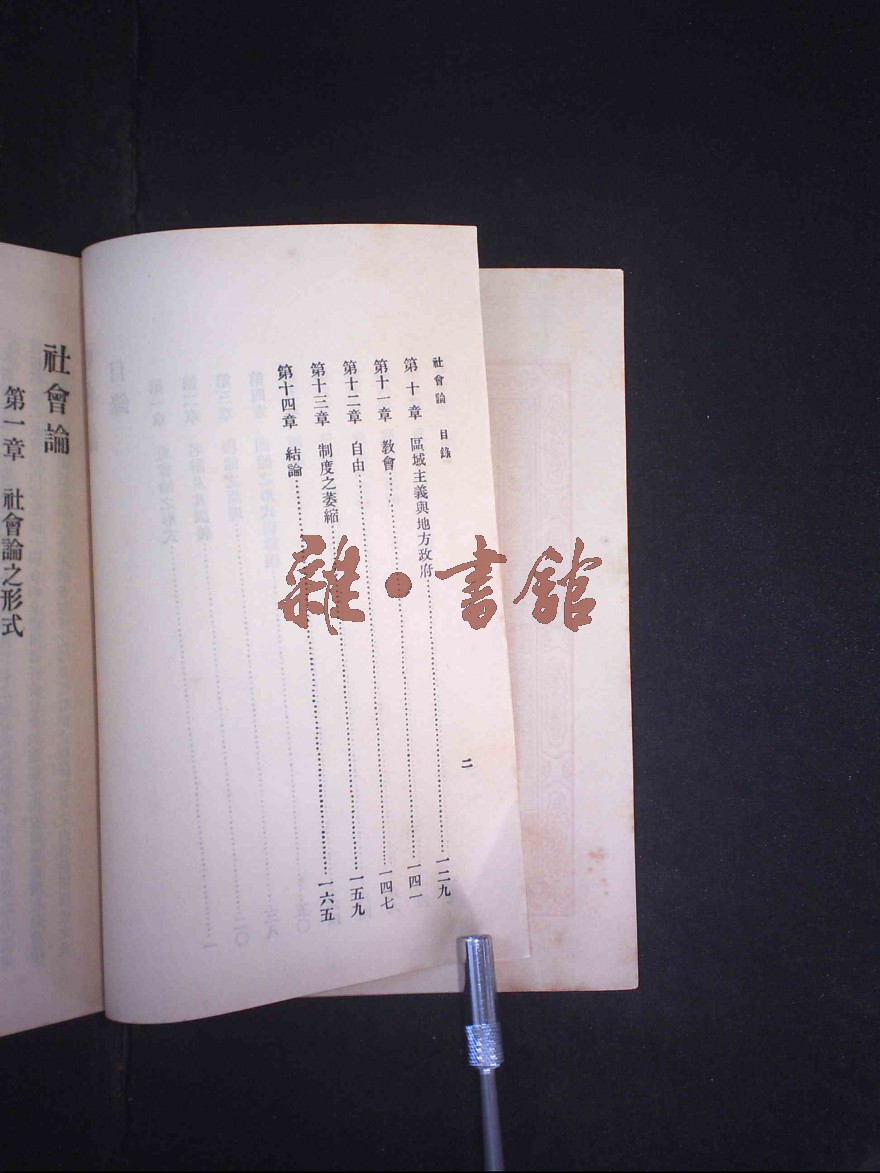 社會論 目錄 二
第十章 區域主義與地方政府……一二九
第十一章 教會……一四一
第十二章 自由……一四七
第十三章 制度之萎縮……一五九
第十四章 結論……一六五
社會論
第一章 社會論之形式
雜•書館